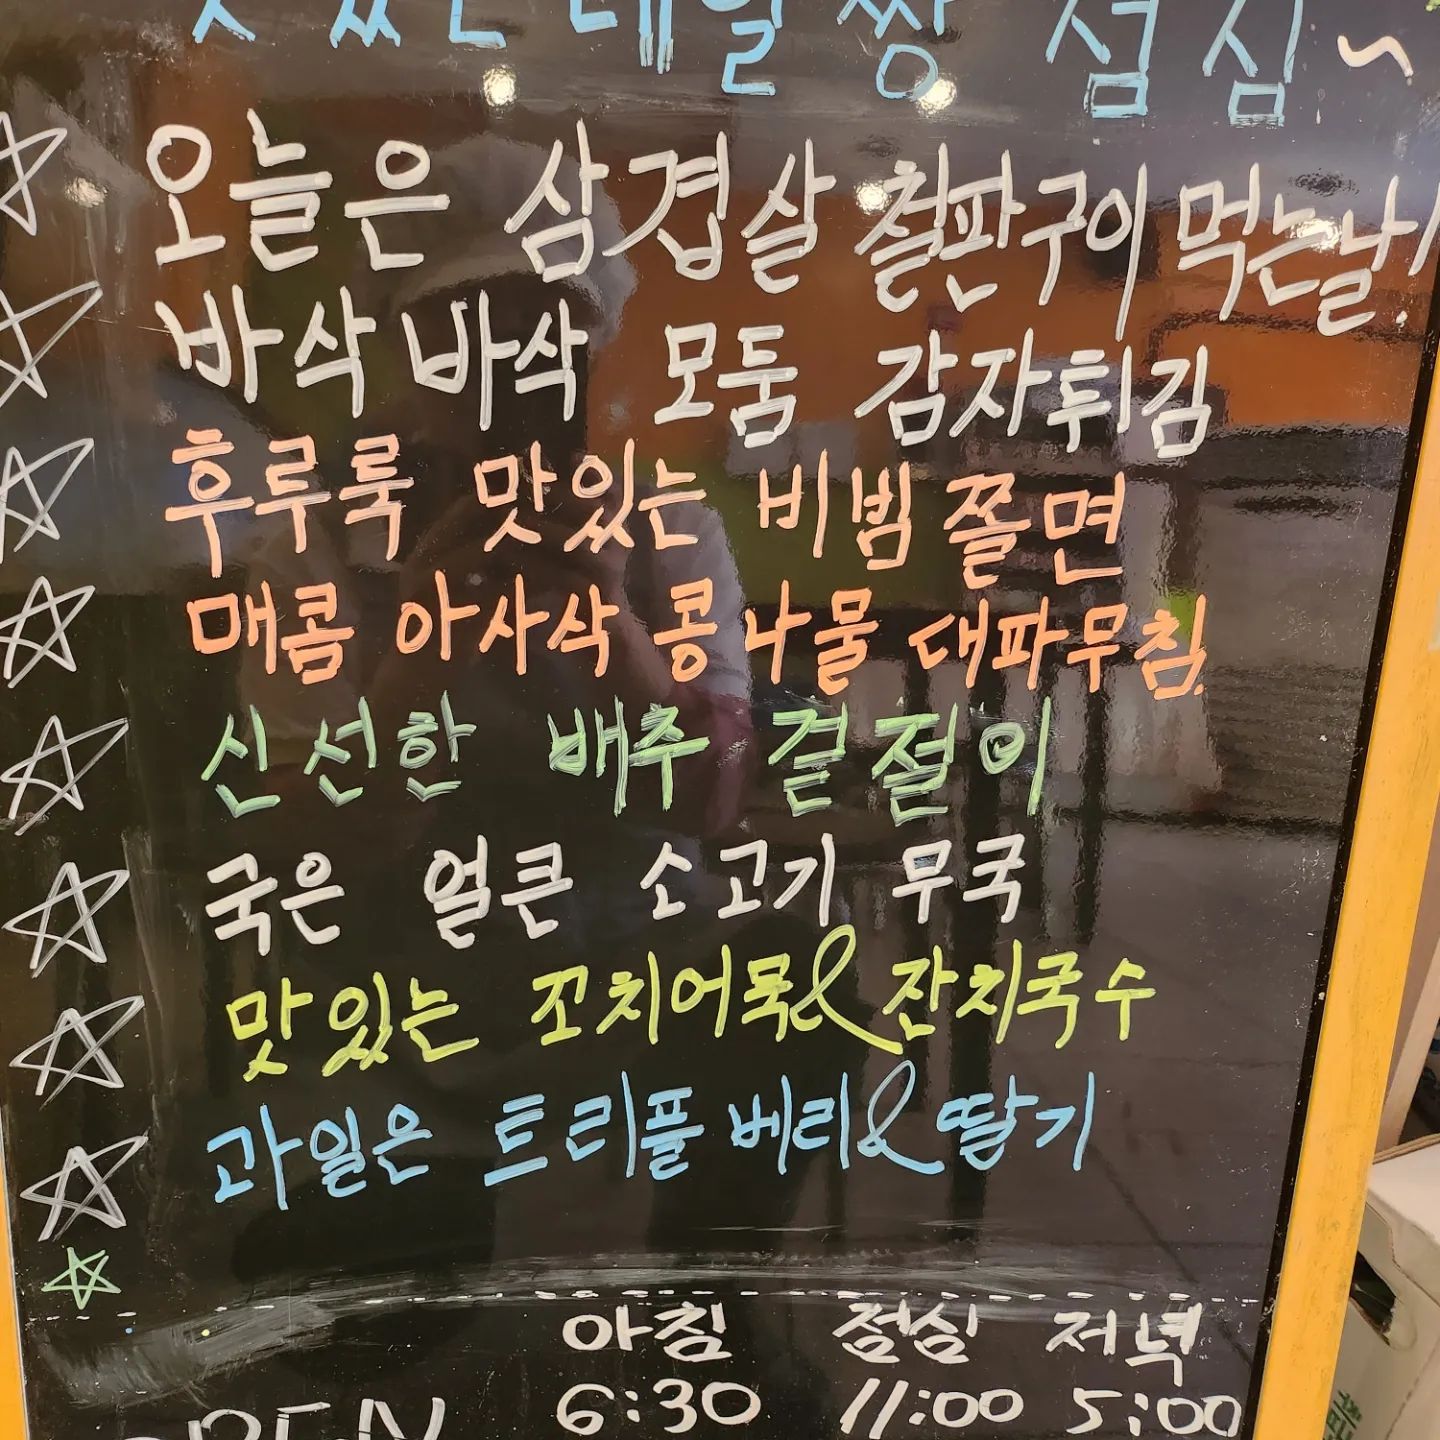 맛있는 데일 짱 점심~
오늘은 삼겹살 철판구이 먹는날!
바삭바삭 모둠 감자튀김
후루룩 맛있는 비빔쫄면
매콤 아사삭 콩나물 대파무침.
신선한 배추 겉절이
국은 얼큰 소고기 무국
맛있는 꼬치어묵&잔치국수
과일은 트리플 베리&딸기
아침 점심 저녁
OPEN 6:30 11:00 5:00